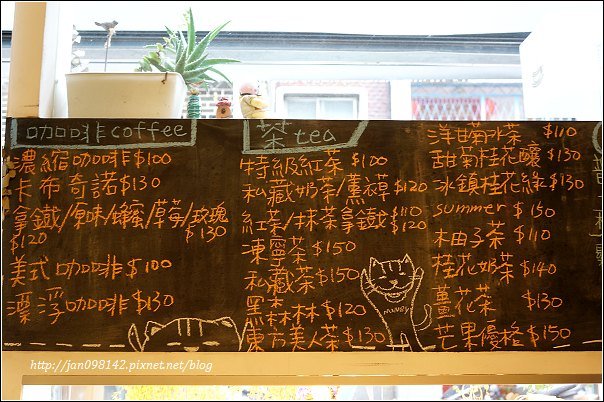 咖啡coffee
濃縮咖啡$100
卡布奇諾$130
拿鐵/原味/蜂蜜/草莓/玫瑰
$120 $130
美式咖啡$100
漂浮咖啡$130
茶tea
特級紅茶$100
私藏奶茶/薰衣草$120
紅茶/抹茶拿鐵$110
$120
凍寧茶$150
私藏茶$150
黑森林$120
東方美人茶$130
MINDY
洋甘菊冰茶 $110
甜菊桂花釀$130
冰鎮桂花綠$130
summer $150
柚子茶 $110
桂花奶茶 $140
薑花茶 $130
芒果優格$150
http://jan098142.pixnet.net/blog